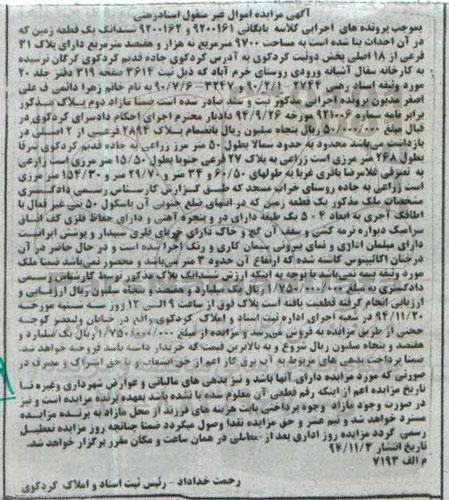 آگهی مزایده اموال غیر منقول اسنادرهنی
بموجب پرونده های اجرایی کلاسه بایگانی ۹۲۰۰۱۶۱ و ۹۲۰۰۱۶۲ ششدانگ یک قطعه زمین که
در آن احداث بنا شده است به مساحت ۹۷۰۰ مترمربع نه هزار و هفتصد مترمربع دارای پلاک ۳۱
فرعی از ۱۸ اصلی بخش دوثبت کردکوی به آدرس کردکوی جاده قدیم کردکوی گرگان نرسیده
به کارخانه سفال آشیانه ورودی روستای خرم آباد که ذیل ثبت ۳۶۱۴ صفحه ۳۱۹ دفتر جلد ۲۰
مورد وثیقه اسناد رهنی ۲۷۴۴ - ۹۰/۲/۱ و ۳۲۴۲ - ۹۰/۷/۶ به نام خانم زهرا دائمی ف علی
اصغر مدیون پرونده اجرایی مذکور ثبت و سند صادر شده است ضمنا مازاد دوم پلاک مذکور
برابر نامه شماره ۹۲۱۰۰۶ مورخه ۹۴/۹/۲۶ دادیار محترم اجرای احکام دادسرای کردکوی در
قبال مبلغ ۵۰/۰۰۰/۰۰۰ ریال پنجاه میلیون ریال بانضمام پلاک ۲۸۹۴ فرعی از ۲ اصلی در
بازداشت می‌باشد محدود به حدود شمالا بطول ۵۰ متر مرز زراعی به جاده قدیم کردکوی شرقا
بطول ۲۶۸ متر مرزی است زراعی به پلاک ۲۷ فرعی جنوبا بطول ۱۵/۵۰ متر مرزی است زراعی
به تصرفی غلامرضا باقری غربا به طولهای ۶۰/۵۰ و ۳۴ متر و ۲۹/۷۰ متر و ۱۵۴/۳۰ متر مرزی
است زراعی به جاده روستای خراب مسجد که طبق گزارش کارشناس رسمی دادگستری
مشخصات ملک مذکور یک قطعه زمین که در انتهای ضلع جنوبی آن باسکول ۵۰ تنی غیر فعال با
اطاقک آجری به ابعاد ۴ * ۵ یک طبقه دارای در و پنجره آهنی و دارای حفاظ فلزی کف اتاق
سرامیک دیواره نرمه کشی و سقف آن گچ و خاک دارای خرپای فلزی شیبدار و پوشش ایرانیت
دارای مبلمان اداری و نمای بیرونی سیمان کاری و رنگ اجرا شده است و در حال حاضر در آن
درختان اکالیپتوس کاشته شده که ارتفاع آن حدود ۳ متر می‌باشد و محصور نمی‌باشد ضمنا ملک
مورد وثیقه بیمه نمی‌باشد با توجه به اینکه ارزش ششدانگ پلاک مذکور توسط کارشناس رسمی
دادگستری به مبلغ ۱/۷۵۰/۰۰۰/۰۰۰ ریال یک میلیارد و هفتصد و پنجاه میلیون ریال ارزیابی و
ارزیابی انجام گرفته قطعیت یافته است پلاک فوق از ساعت ۹ الی ۱۲ روز سه شنبه مورخه
۹۴/۱۱/۲۰ در شعبه اجرای اداره ثبت اسناد و املاک کردکوی واقع در خیابان ولیعصر کوچه
حجتی از طریق مزایده به فروش می‌رسد و مزایده از مبلغ ۱/۷۵۰/۰۰۰/۰۰۰ ریال یک میلیارد و
هفتصد و پنجاه میلیون ریال شروع و به بالاترین قیمت که خریدار داشته باشد فروخته خواهد شد.
ضمنا پرداخت بدهی های مربوط به آب برق گاز اعم از حق انشعاب و یا حق اشتراک و مصرف در
صورتی که مورد مزایده دارای آنها باشد و نیز بدهی های مالیاتی و عوارض شهرداری وغیره تا
تاریخ مزایده اعم از اینکه رقم قطعی آن معلوم شده یا نشده باشد بعهده برنده مزایده است و نیز
در صورت وجود مازاد وجوه پرداختی بابت هزینه های فرزند از محل مازاد به برنده مزایده
مسترد خواهد شد و نیم عشر و حق مزایده نقدا وصول میگردد ضمنا چنانچه روز مزایده تعطیل
رسمی گردد مزایده روز اداری بعد از تعطیلی در همان ساعت و مکان مقرر برگزار خواهد شد.
تاریخ انتشار ۹۴/۱۱/۳
م الف ۷۱۹۳
رحمت خداداد - رئیس ثبت اسناد و املاک کردکوی